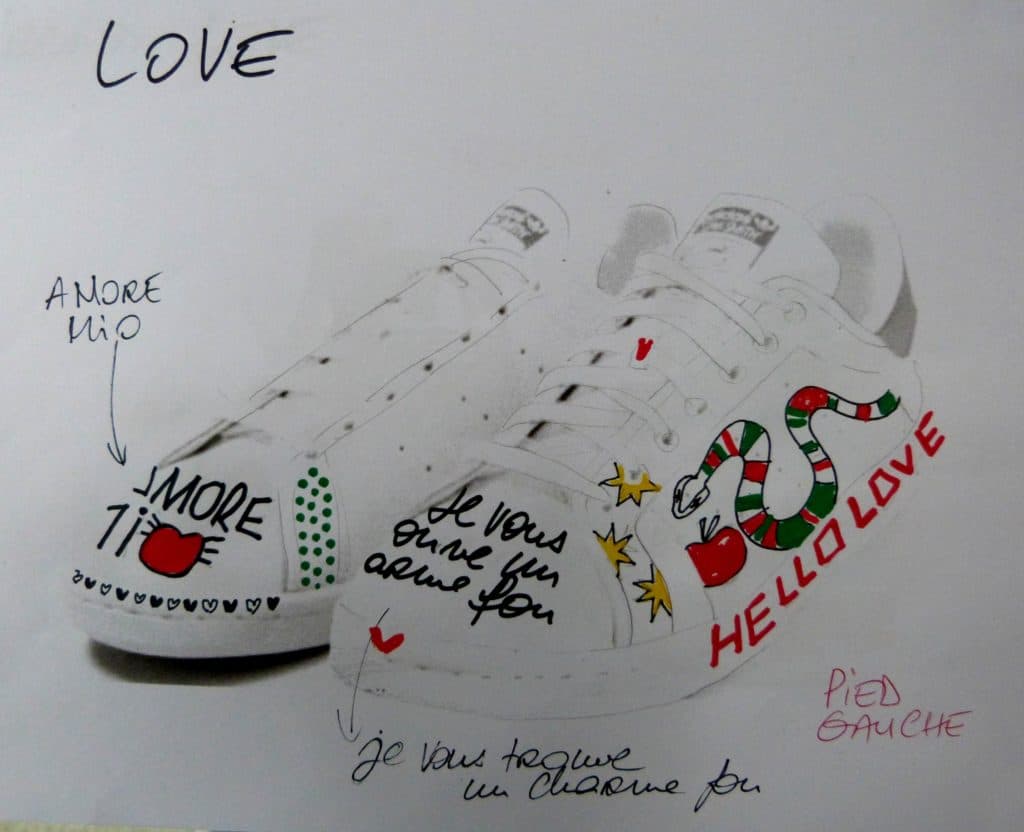 LOVE
AMORE
MiO
MORE
Je vous
un
fou
HELLO LOVE
PiED
GAUCHE
je vous trouve
un charme fou